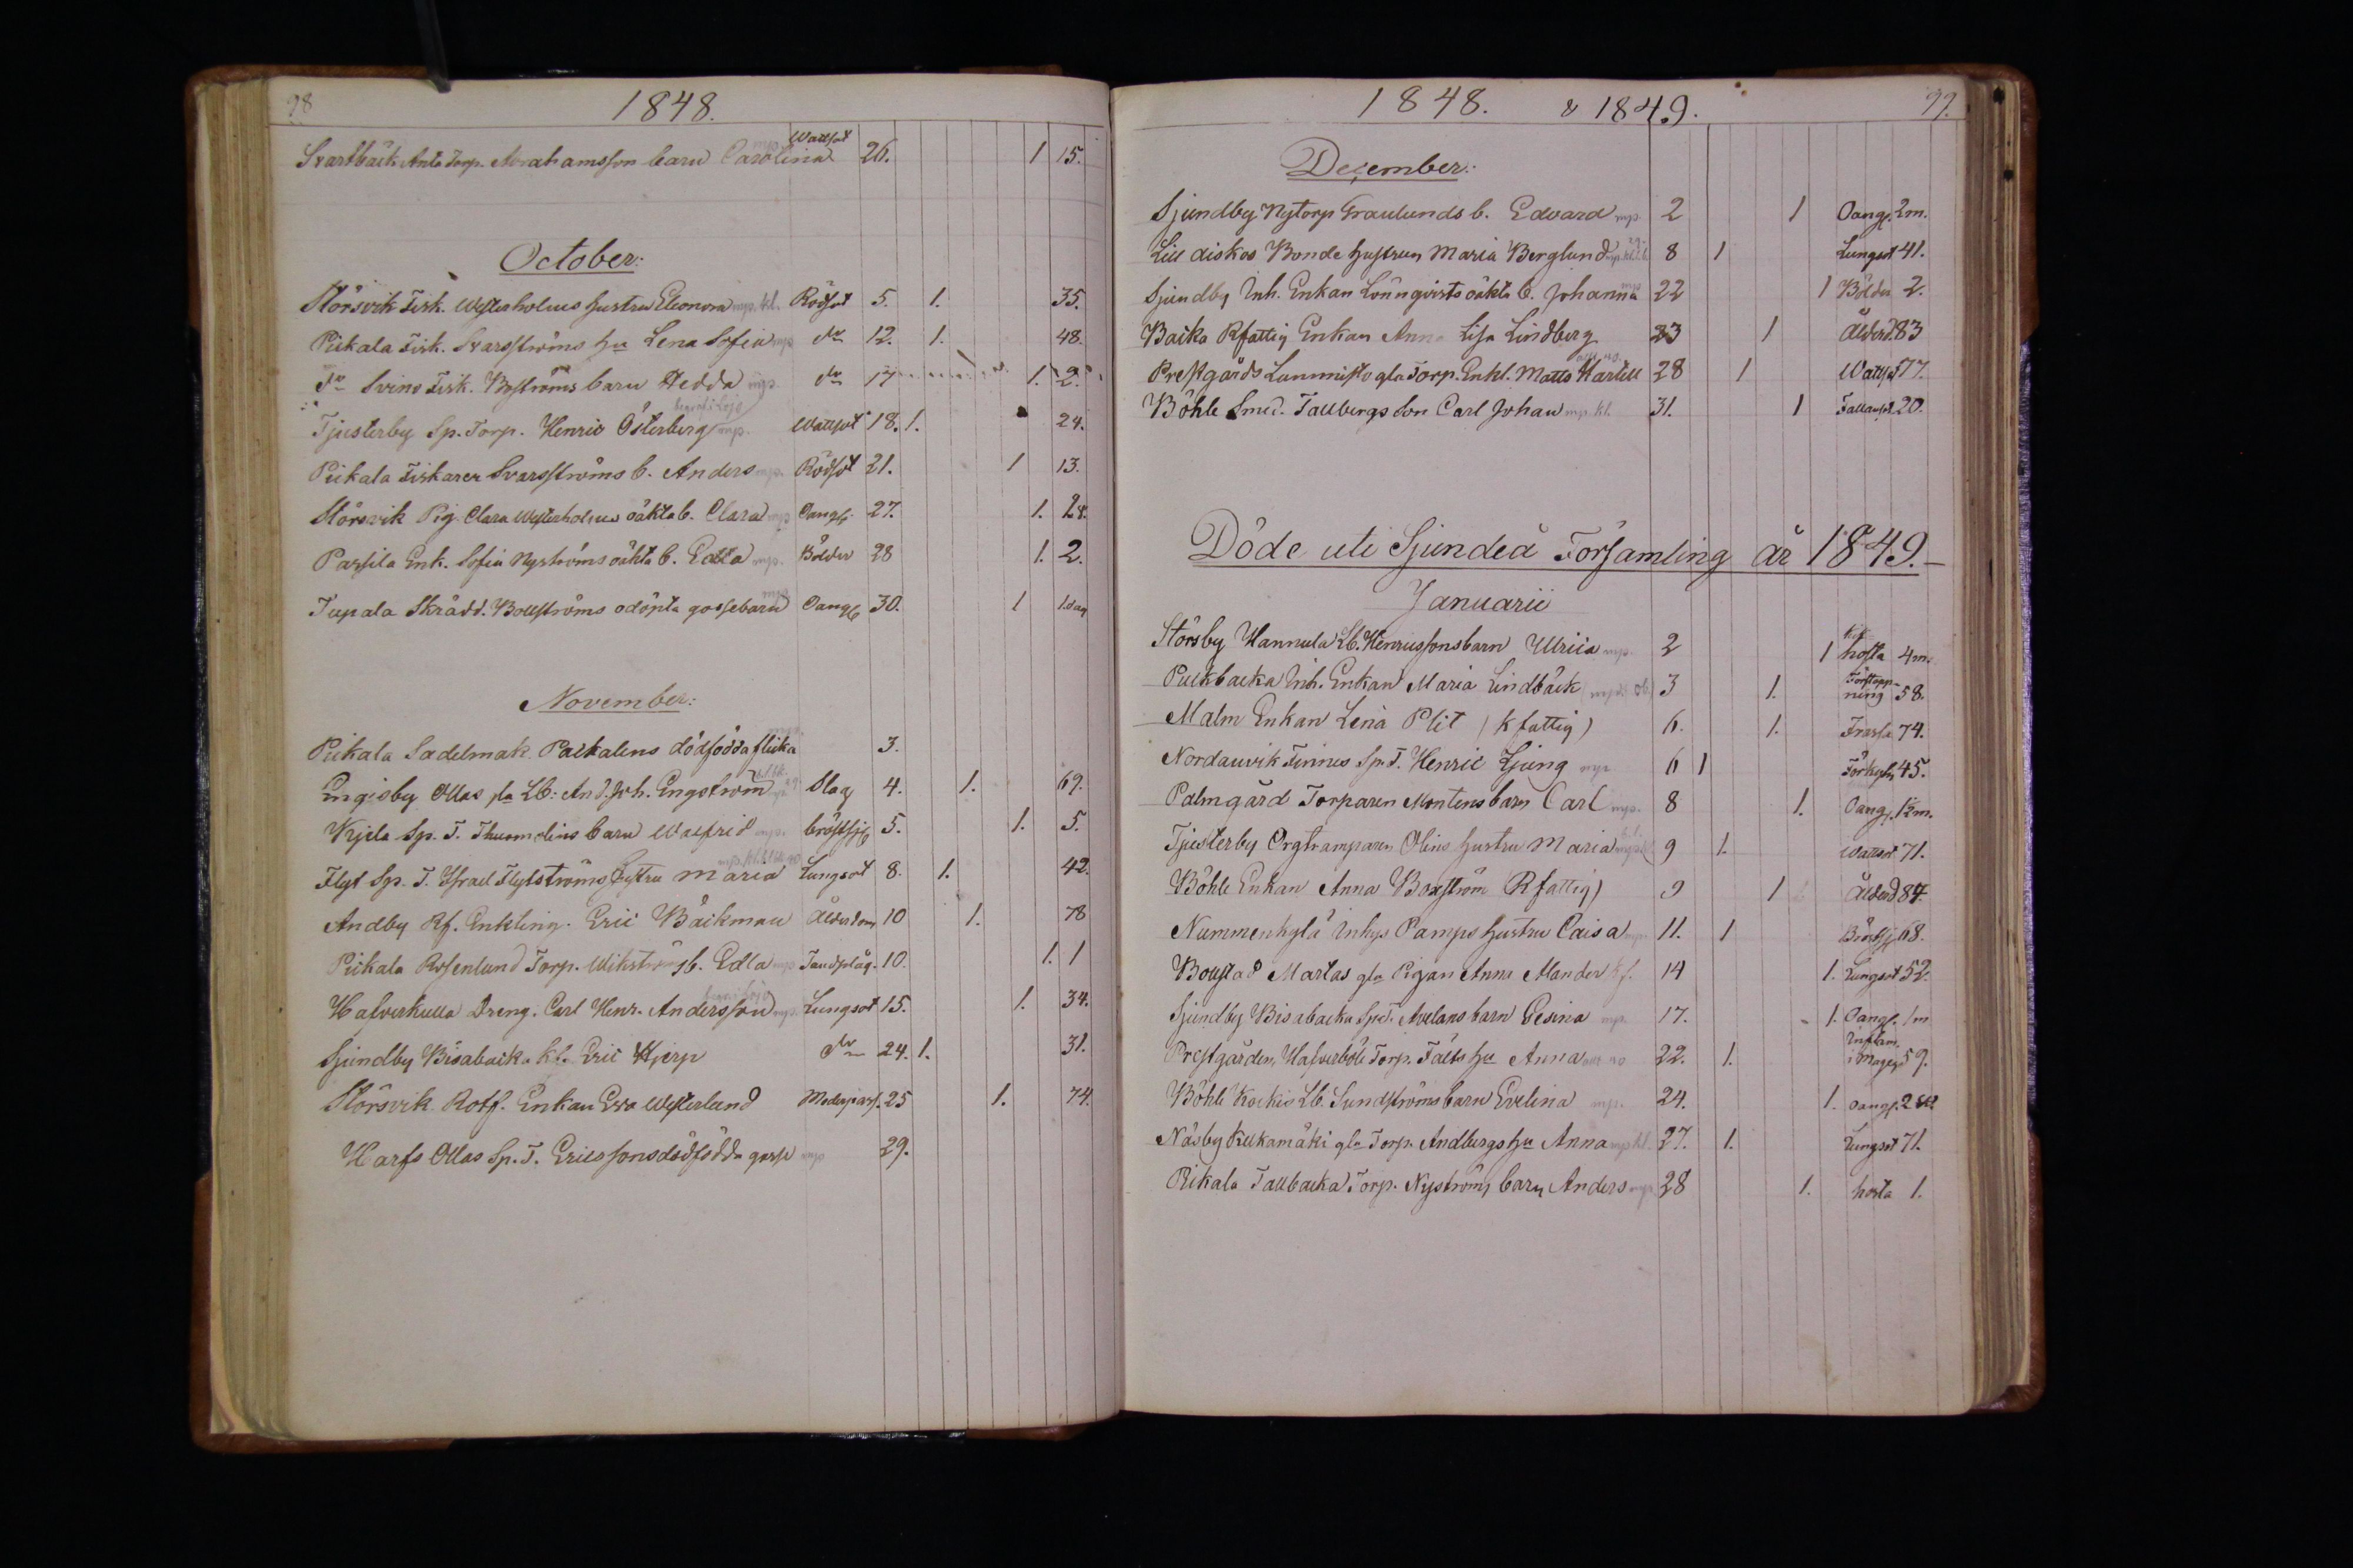 98
1848.
Svartbäck Ante Torp. Abrahamsson barn Carolina Wattsot 26. 1 15.
October:
Störsvik Fisk. Westerholms hustru Eleonora mp. kl. Rödsot 5. 1. 35.
Pikala Fisk. Svarsströms hu Lena Sofia mp do 12. 1. 48.
do Svinö Fisk. Boströms barn Hedda mp. do 17 1. 2.
Tjusterby Sp. Torp. Henric Österberg mp. Wattsot 18. 1. 24.
Pikala Fiskaren Svarsströms b. Anders mp. Rödsot 21. 1 13.
Störsvik Pig. Clara Westerholms oäkta b. Clara mp Oangf. 27. 1. 2
Parsila Enk. Sofia Nyströms oäkta b. Edla mp. Bölder 28 1. 2.
Tupala Skrädd. Bollströms odöpta gossebarn mp. Oangf 30. 1 1. dag
November:
Pikala Sadelmak. Paikalens dödfödda flicka 3.
Engisby Ollas fda Lb: And. Joh. Engström Slag 4. 1. 69.
Kjela Sp. T. Thurmelins barn Walfrid mp. bröstsjg 5. 1. 5.
Flyt Sp. T. Israel Flytströms hustru Maria Lungsot 8. 1. 42.
Andby Rf. Enkling. Eric Bäckman Ålderdom 10 1. 78
Pikala Rosenlund Torp. Wikströms b. Edla mp Tandplåg. 10. 1. 1
Halverkulla Dreng. Carl Henr. Andersson mp. Lungsot 15. 1. 34.
Sjundby Bisabacka kl. Eric Hjerp do 24. 1. 31.
Störsvik Rotf. Enkan Eva Westerlund Moderpass. 25 1. 74.
Harfs Ollas Sp. T. Ericssons dödfödda gosse mp 29.
1848. & 1849. 99.
December:
Sjundby Nytorp Franlunds b. Edvard mp. 2 1 Oangf. 2m.
Lill diskos Bonde hustrun Maria Berglund 8 1 Lungsot 41.
Sjundby Inh. Enkan Lönnqvists oäkta b. Johanna mp 22 1 Bölder 2.
Backa Rfattig Enkan Anna Lisa Lindberg 23 1 Ålderd. 83
Prestgårds Lunnnisto gla Torp. Enkl. Matts Hartell 28 1 Wattsot 77.
Böhle Smed. Tallbergs Son Carl Johan mp. kl. 31. 1 Fallansot 20.
Döde uti Sjundeå Församling år 1849.
Januarii
Störsby Hannula Lb. Henricssons barn Ulrica mp. 2 1 Kik hosta 4m.
Puckbacka Inh. Enkan Maria Lindbäck 3 1. Förstoppning 58.
Malm Enkan Lena Plit (k fattig) 6. 1. Frossa 74.
Nordanvik Finnes Sp. T. Henric Ljung mp 6 1 Förkyln 45.
Palmgård Torparen Mortens barn Carl mp. 8 1. Oangf. 1½m.
Tjusterby Orgtramparen Olins hustru Maria 9 1. Wattsot 71.
Böhle Enkan Anna Boxström (Rfattig) 9 1 Ålderd 84.
Nummenkylä Inhys Pamps hustru Caisa mp. 11. 1 Bröstsj 68.
Boustad Martas gla Pigan Anna Mander kf. 14 1. Lungsot 52.
Sjundby Bisabacka Sp. T. Avelans barn Gesina mp. 17. 1. Oangf. 1m
Prestgården, Halverböle Torp. Fälts hu Anna 22. 1. Inflam. i Magen 59.
Böhle Kockis Lb. Sundströms barn Evelina mp. 24. 1. Oangf. 2
Näsby Kukamäki gla Torp. Andbergs hu Anna mp kl. 27. 1. Lungsot 71.
Pikala Tallbacka Torp. Nyströms barn Anders mp 28 1. hosta 1.